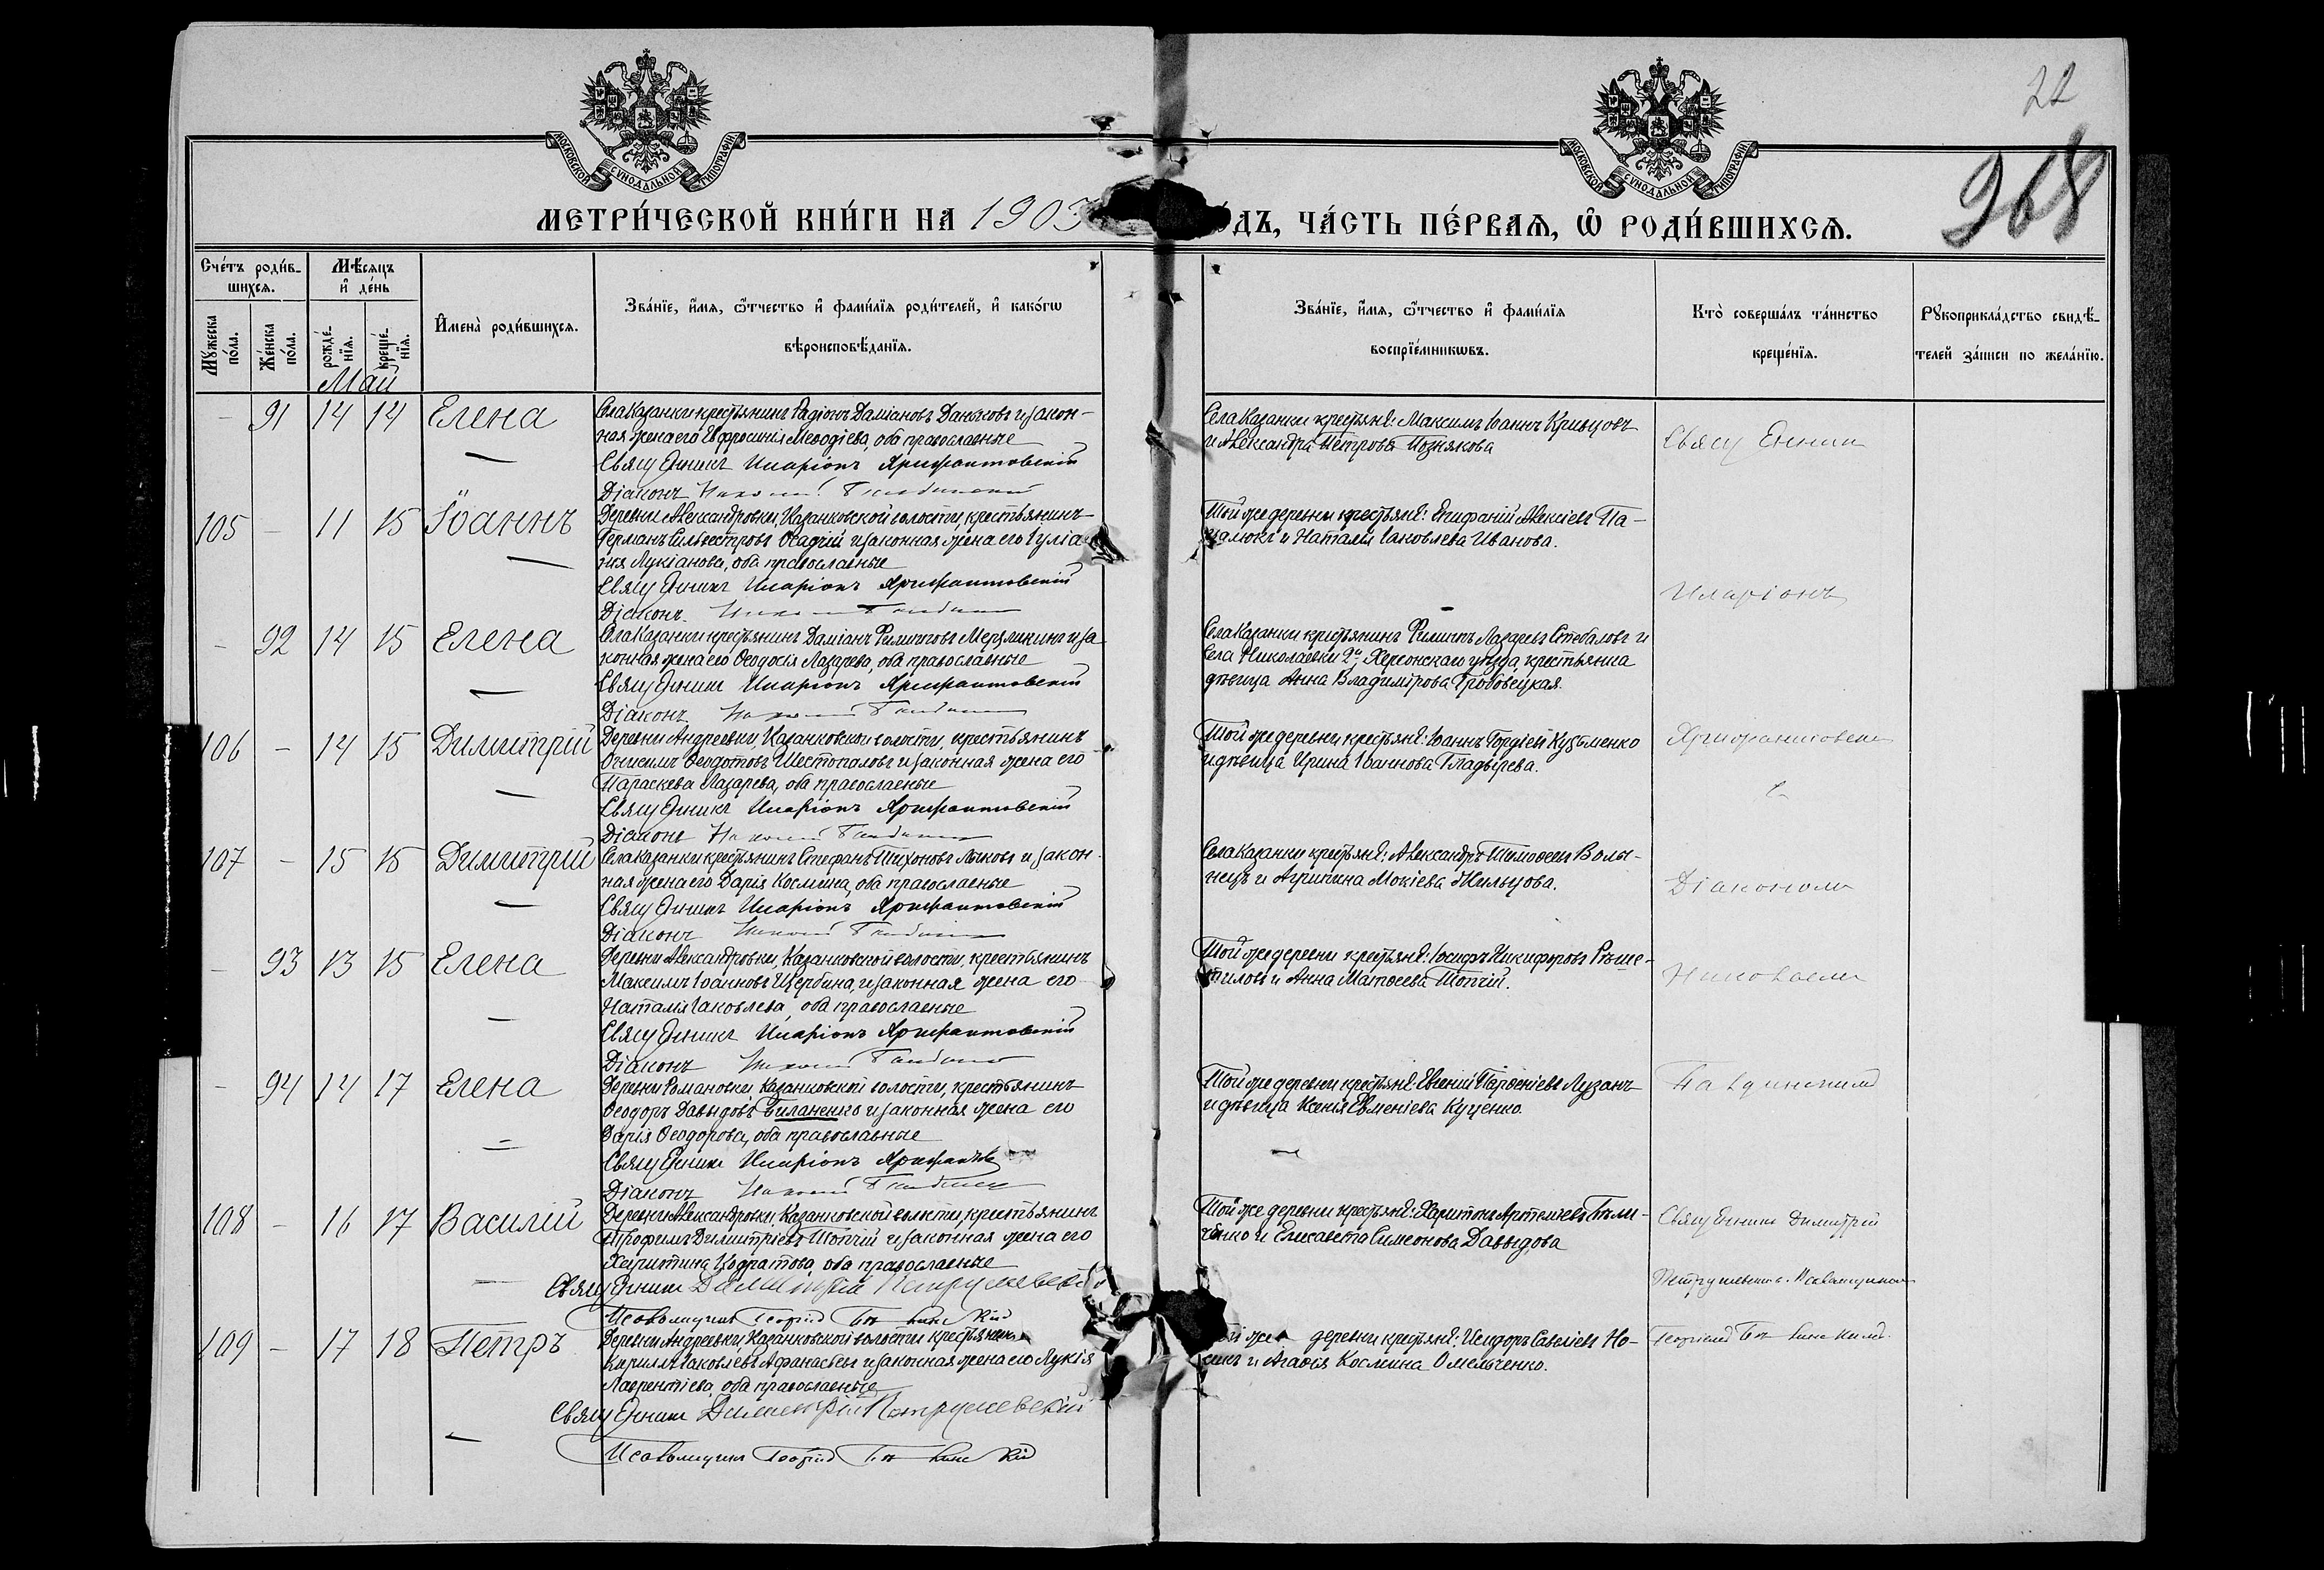 22
968
МОСКОВСКОЙ СУНОДАЛЬНОЙ ТИПОГРАФІИ
МОСКОВСКОЙ СУНОДАЛЬНОЙ ТИПОГРАФІИ
МЕТРИ́ЧЕСКОЙ КНИ́ГИ НА 1903
ѺДЪ, ЧА́СТЬ ПЕ́РВАѦ, Ѽ РОДИ́ВШИХСѦ.
Сче́тъ роди́в-
шихсѧ.
Мѣ́сяцъ
и҆ де́нь
Мꙋ́жеска
по́ла.
Же́нска
по́ла.
рожде́-
нїѧ.
креще́-
нїѧ.
И҆мена̀ роди́вшихсѧ.
Зва́нїе, и҆́мѧ, ѻ҆́тчество и҆ фами́лїѧ роди́телей, и҆ како́гѡ
вѣроисповѣ́данїѧ.
Зва́нїе, и҆́мѧ, ѻ҆́тчество и҆ фами́лїѧ
воспрїе́мникѡвъ.
Кто̀ соверша́лъ та́инство
креще́нїѧ.
Рꙋкоприкла́дство свидѣ́-
телей за́писи по жела́нїю.
Май
– 91 14 14 Елена
Села Казанки крестьянинъ Радіонъ Даміановъ Данковъ и закон-
ная жена его Евфросинія Меѳодіева, оба православные
Священникъ Иларіонъ Ярифантовскій
Діаконъ
Села Казанки крестьяне: Максимъ Іоаннъ Кривцовъ
и Александра Петрова Познякова
Священ
105 – 11 15 Іоаннъ
Деревни Александровки, Казанковской волости, крестьянинъ
Германъ Сильвестровъ Осадчій и законная жена его Іуліа-
нія Лукіанова, оба православные
Священникъ Иларіонъ Ярифантовскій
Діаконъ
Той же деревни крестьяне: Епифаній Алексіевъ Па-
и Наталія Іаковлева Иванова.
Иларіонъ
– 92 14 15 Елена
Села Казанки крестьянинъ Даміанъ Филипповъ Мерзликинъ и за
конная жена его Ѳеодосія Лазарева, оба православные
Священникъ Иларіонъ Ярифантовскій
Діаконъ
Села Казанки крестьянинъ Филиппъ Лазаревъ Стебаловъ и
села Николаевки 2й Херсонскаго уѣзда, крестьянка
дѣвица Анна Владимірова Гробовецкая.
106 – 14 15 Димитрій
Деревни Андреевки, Казанковской волости, крестьянинъ
Онисимъ Ѳеодотовъ Шестопаловъ и законная жена его
Параскева Лазарева, оба православные
Священникъ Иларіонъ Ярифантовскій
Діаконъ
Той же деревни крестьяне: Іоаннъ Гордіевъ Кузьменко
и дѣвица Ирина Іоаннова Гладырева.
107 – 15 15 Димитрій
Села Казанки крестьянинъ Стефанъ Тихоновъ Лыковъ и закон-
ная жена его Дарія Космина, оба православные
Священникъ Иларіонъ Ярифантовскій
Діаконъ
Села Казанки крестьяне: Александръ Тимоѳеевъ Волы-
нецъ и Агрипина Мокіева Жильцова.
Діакономъ
– 93 13 15 Елена
Деревни Александровки, Казанковской волости, крестьянинъ
Максимъ Іоанновъ Щербина, и законная жена его
Наталія Іаковлева, оба православные
Священникъ Иларіонъ Ярифантовскій
Діаконъ
Той же деревни крестьяне: Іосифъ Никифоровъ Рѣше-
тиловъ и Анна Матѳеева Топчій.
Николаемъ
– 94 14 17 Елена
Деревни Романовки, Казанковской волости, крестьянинъ
Ѳеодоръ Давыдовъ Биланенко и законная жена его
Дарія Ѳеодорова, оба православные
Священникъ Иларіонъ
Діаконъ
Той же деревни крестьяне: Евгеній Парѳеніевъ Лузанъ
и дѣвица Ксенія Евменіева Куценко.
108 – 16 17 Василій
Деревни Александровки, Казанковской волости, крестьянинъ
Трофимъ Димитріевъ Топчій и законная жена его
Харитина Кодратова, оба православные
Священникъ Димитрій Петрушевскій
Псаломщикъ Георгій
Той же деревни крестьяне: Харитонъ Артеміевъ Бѣли-
ченко и Елисавета Симеонова Давыдова
Священникъ Димитрій
Петрушевскій с. Псаломщикомъ
109 – 17 18 Петръ
Деревни Андреевки, Казанковской волости крестьянинъ
Кириллъ Іаковлевъ Афанасьевъ и законная жена его Лукія
Лаврентіева, оба православные
Священникъ Димитрій Петрушевскій
Псаломщикъ Георгій
же деревни крестьяне: Исидоръ Савеліевъ Но-
и Агаѳія Космина Омельченко.
Георгіемъ